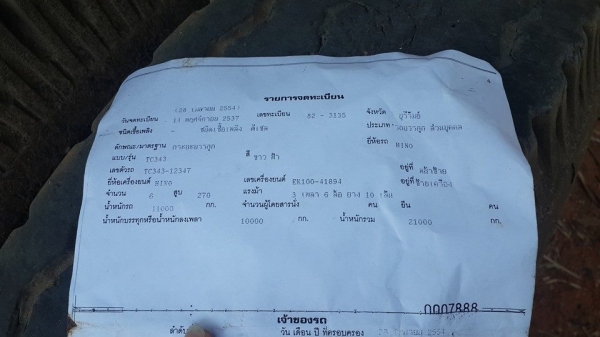 รายการจดทะเบียน
(28 เมษายน 2554)
วันจดทะเบียน 14 พฤศจิกายน 2537 เลขทะเบียน 82-3135 จังหวัด บุรีรัมย์
ชนิดเชื้อเพลิง - ชนิดเชื้อเพลิง ดีเซล ประเภท ส่วนบุคคล
ลักษณะ/มาตรฐาน กระบะบรรทุก ยี่ห้อรถ HINO
แบบ/รุ่น TC343 สี ขาว ฟ้า
เลขตัวรถ TC343-12347 อยู่ที่
ยี่ห้อเครื่องยนต์ HINO เลขเครื่องยนต์ EK100-41894 อยู่ที่ ซ้ายเครื่อง
จำนวน 6 สูบ 270 แรงม้า 3 เพลา 6 ล้อ ยาง 10 เส้น
น้ำหนักรถ 11000 กก. จำนวนผู้โดยสารนั่ง คน ยืน คน
น้ำหนักบรรทุกหรือน้ำหนักลงเพลา 10000 กก. น้ำหนักรวม 21000 กก.
0007888
เจ้าของรถ
วัน เดือน ปี ที่ครอบครอง 28 เมษายน 2554